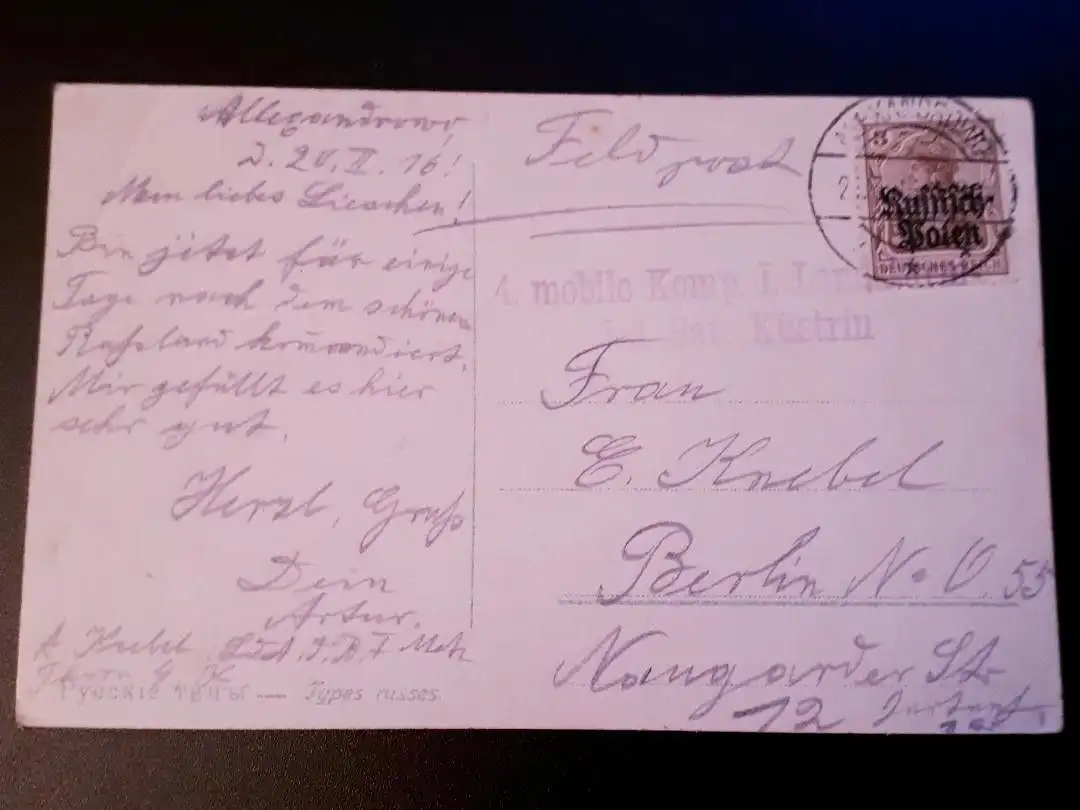 Allexandrowo,
d. 20. II. 16!
Mein liebes Lieschen!
Bin jetzt für einige
Tage nach dem schönen
Russland kommandiert.
Mir gefällt es hier
sehr gut.
Herzl. Gruß
Dein
Artur.
A. Knebel
Thorn
Рускіе типы — Types russes.
Feldpost
8
Russisch-
Polen
DEUTSCHES REICH
4. mobile Komp. I.
Bat. Küstrin
Frau
E. Knebel
Berlin N. O. 55
Naugarder Str
12